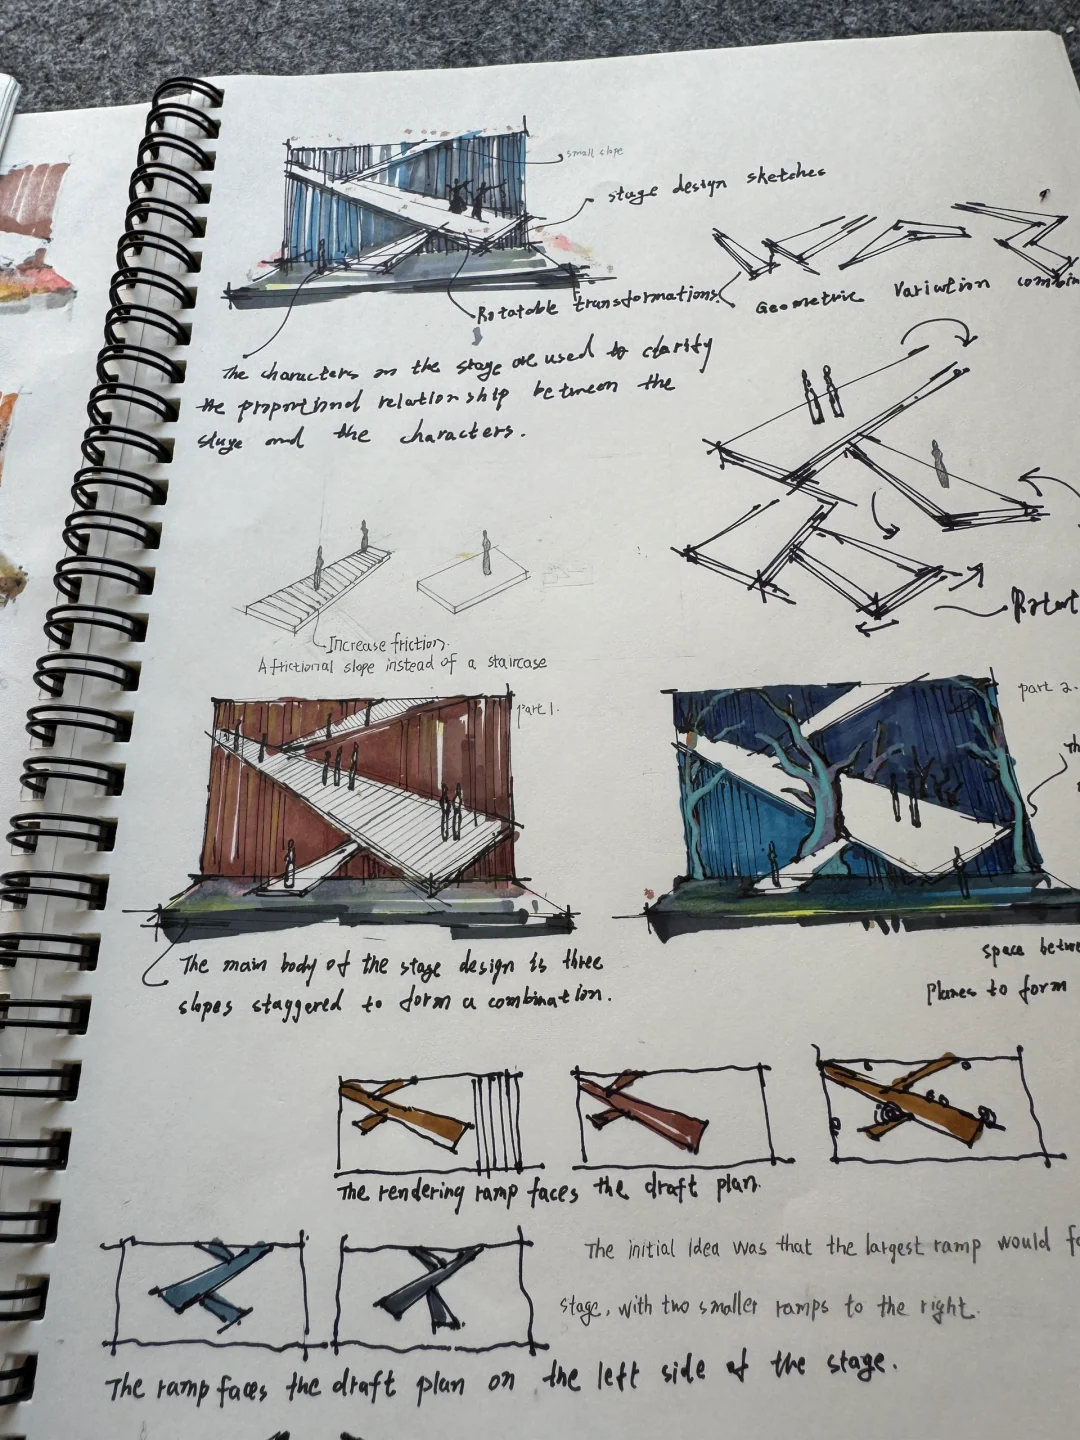 small slope
stage design sketches
Rotatable transformations.
Geometric Variation combin
The characters on the stage are used to clarify
the proportional relationship between the
stage and the characters.
Increase friction.
A frictional slope instead of a staircase
Rotat
part 1.
part 2.
Th
The main body of the stage design is three
slopes staggered to form a combination.
space betwe
planes to form
The rendering ramp faces the draft plan.
The initial idea was that the largest ramp would fa
stage, with two smaller ramps to the right.
The ramp faces the draft plan on the left side of the stage.